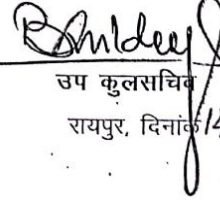 उप कुलसचिव
रायपुर, दिनांक 14